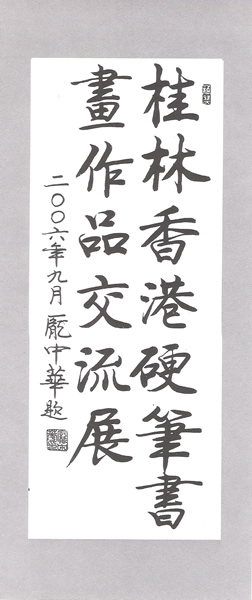 桂林香港硬筆書
畫作品交流展
二〇〇六年九月龐中華題